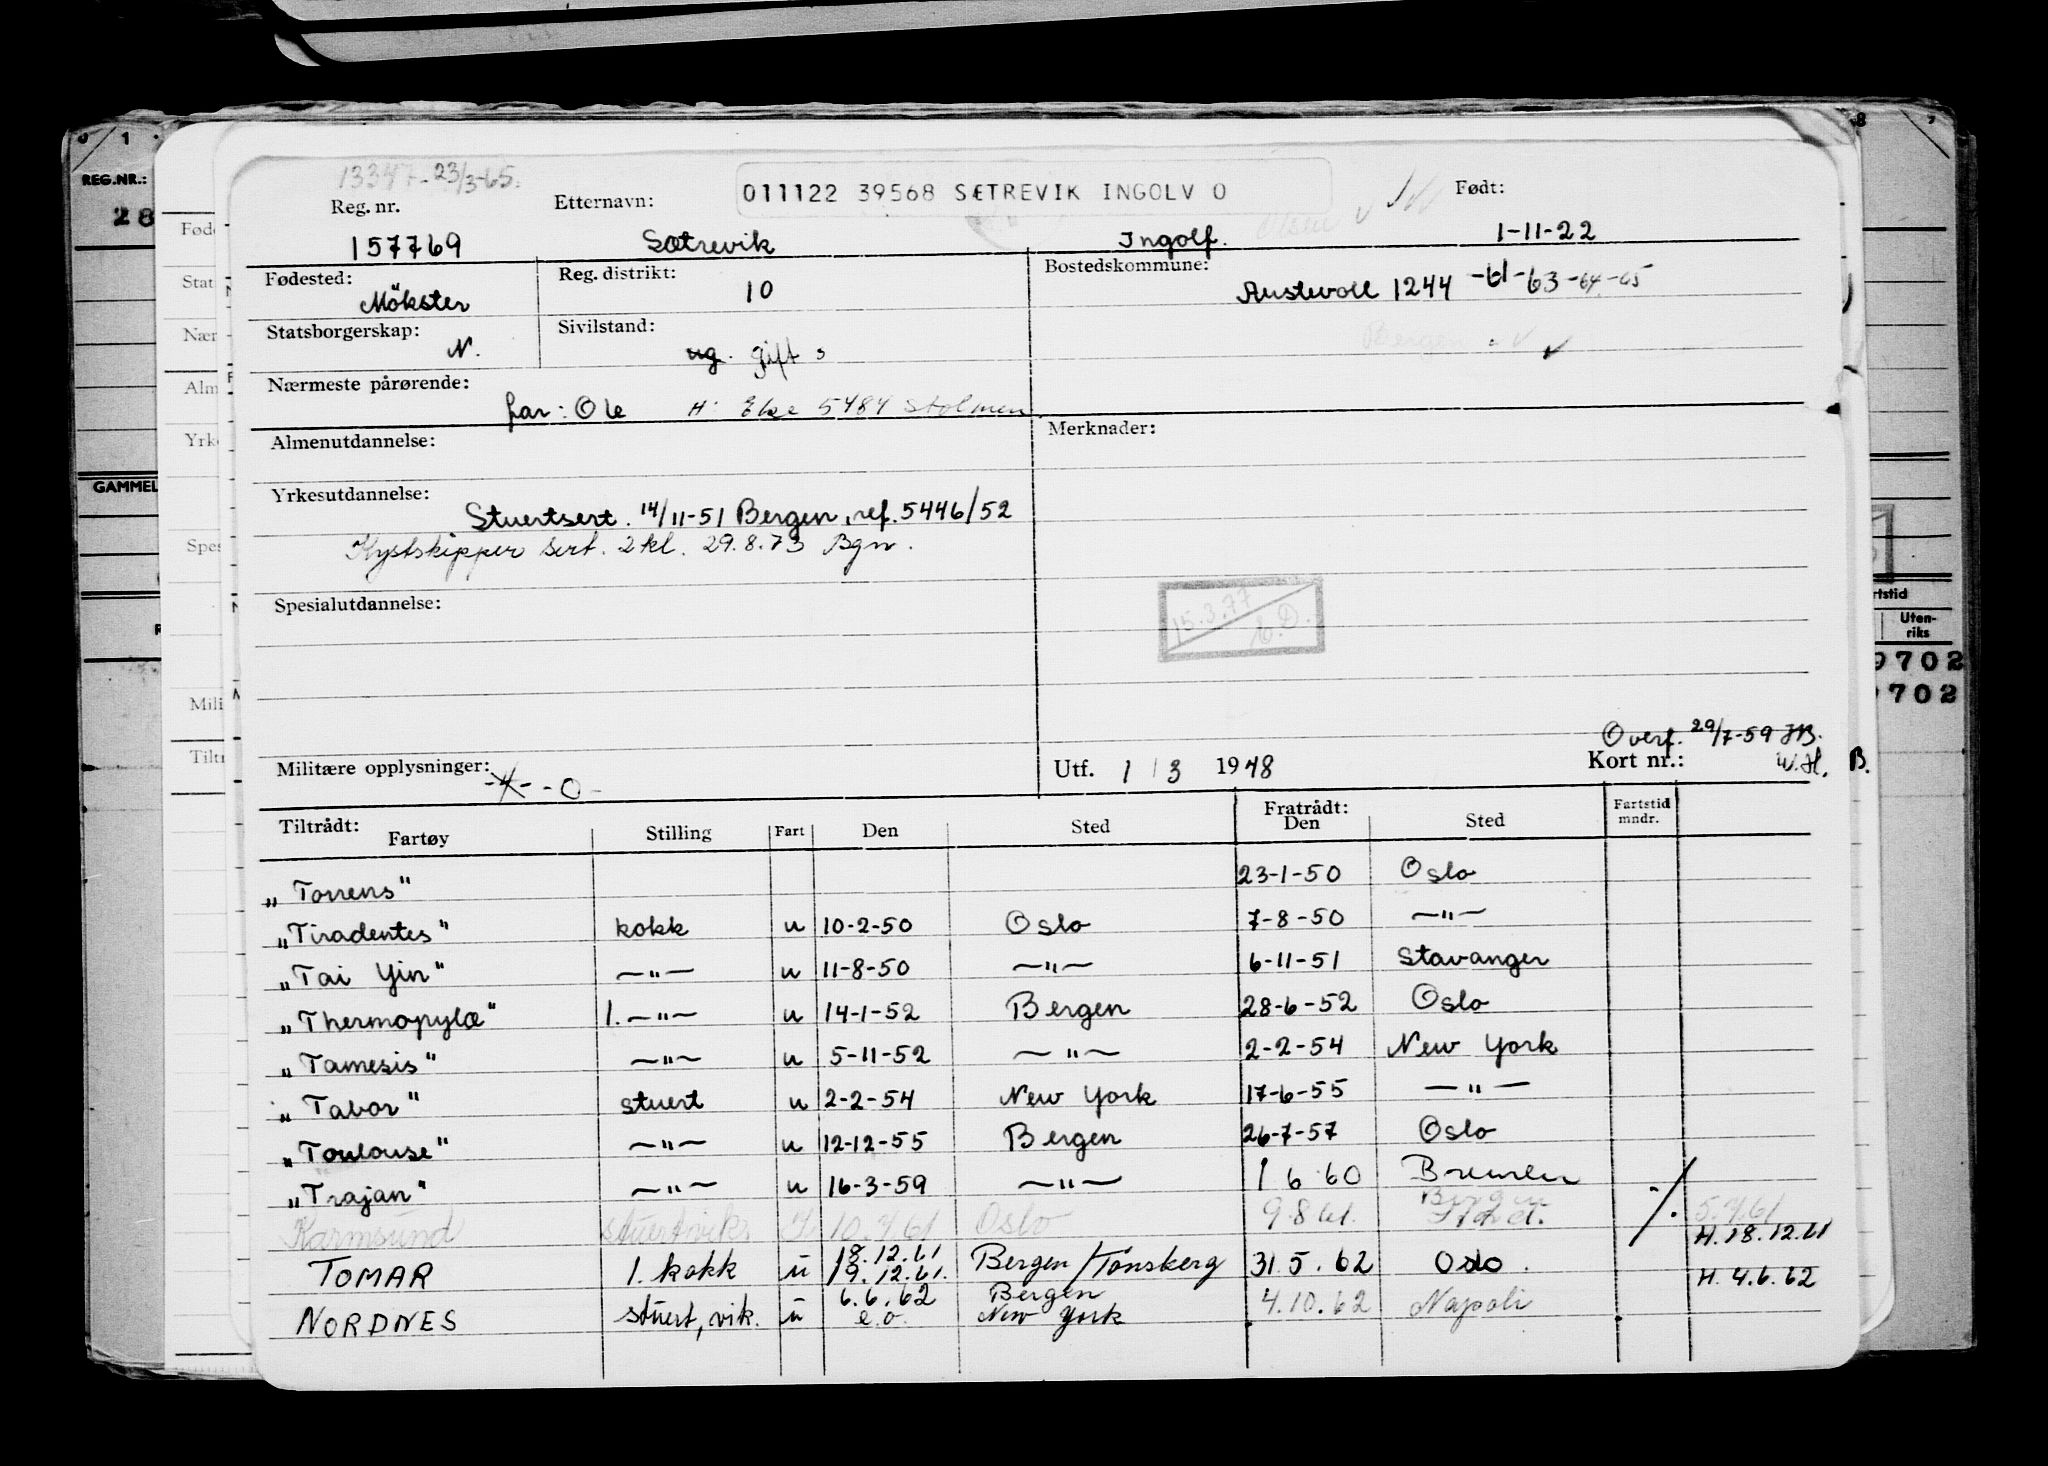 13347-23/3-65.
Reg. nr. Etternavn: 011122 39568 SÆTREVIK INGOLV O Født:
157769 Sætrevik Ingolf. Olsen 1-11-22
Fødested: Reg. distrikt: Bostedskommune:
Mökster 10 Austevoll 1244 -61-63-64-65
Statsborgerskap: Sivilstand: Bergen
N. ug. gift
Nærmeste pårørende:
far: Ole H: Else 5484 Stolmen
Almenutdannelse: Merknader:
Yrkesutdannelse:
Stuertsert. 14/11-51 Bergen, ref. 5446/52
Kystskipper sert. 2kl. 29.8.73 Bgn.
Spesialutdannelse:
15.3.77
Overf. 29/7-59 JB.
Militære opplysninger: -O- Utf. 1/3 1948 Kort nr.: W.H. B.
Tiltrådt: Fartøy Stilling Fart Den Sted Fratrådt: Den Sted Fartstid mndr.
"Torrens" 23-1-50 Oslo
"Tiradentes" kokk u 10-2-50 Oslo 7-8-50 —"—
"Tai Yin" —"— u 11-8-50 —"— 6-11-51 Stavanger
"Thermopylæ" 1. —"— u 14-1-52 Bergen 28-6-52 Oslo
"Tamesis" —"— u 5-11-52 —"— 2-2-54 New York
"Tabor" stuert u 2-2-54 New York 17-6-55 —"—
"Toulouse" —"— u 12-12-55 Bergen 26-7-57 Oslo
"Trajan" —"— u 16-3-59 —"— 1 6 60 Bremen
Karmsund stuert vik. 10.7.61 Oslo 9.8.61. Bergen 5.7.61
H. 18.12.61
TOMAR 1. kokk u 18.12.61 19.12.61. Bergen/Tønsberg 31.5.62 Oslo.
H. 4.6.62
NORDNES stuert, vik. u 6.6.62 e.o. Bergen New York 4.10.62 Napoli
REG.NR.:
28
GAMMEL
Uten-
riks
9702
702